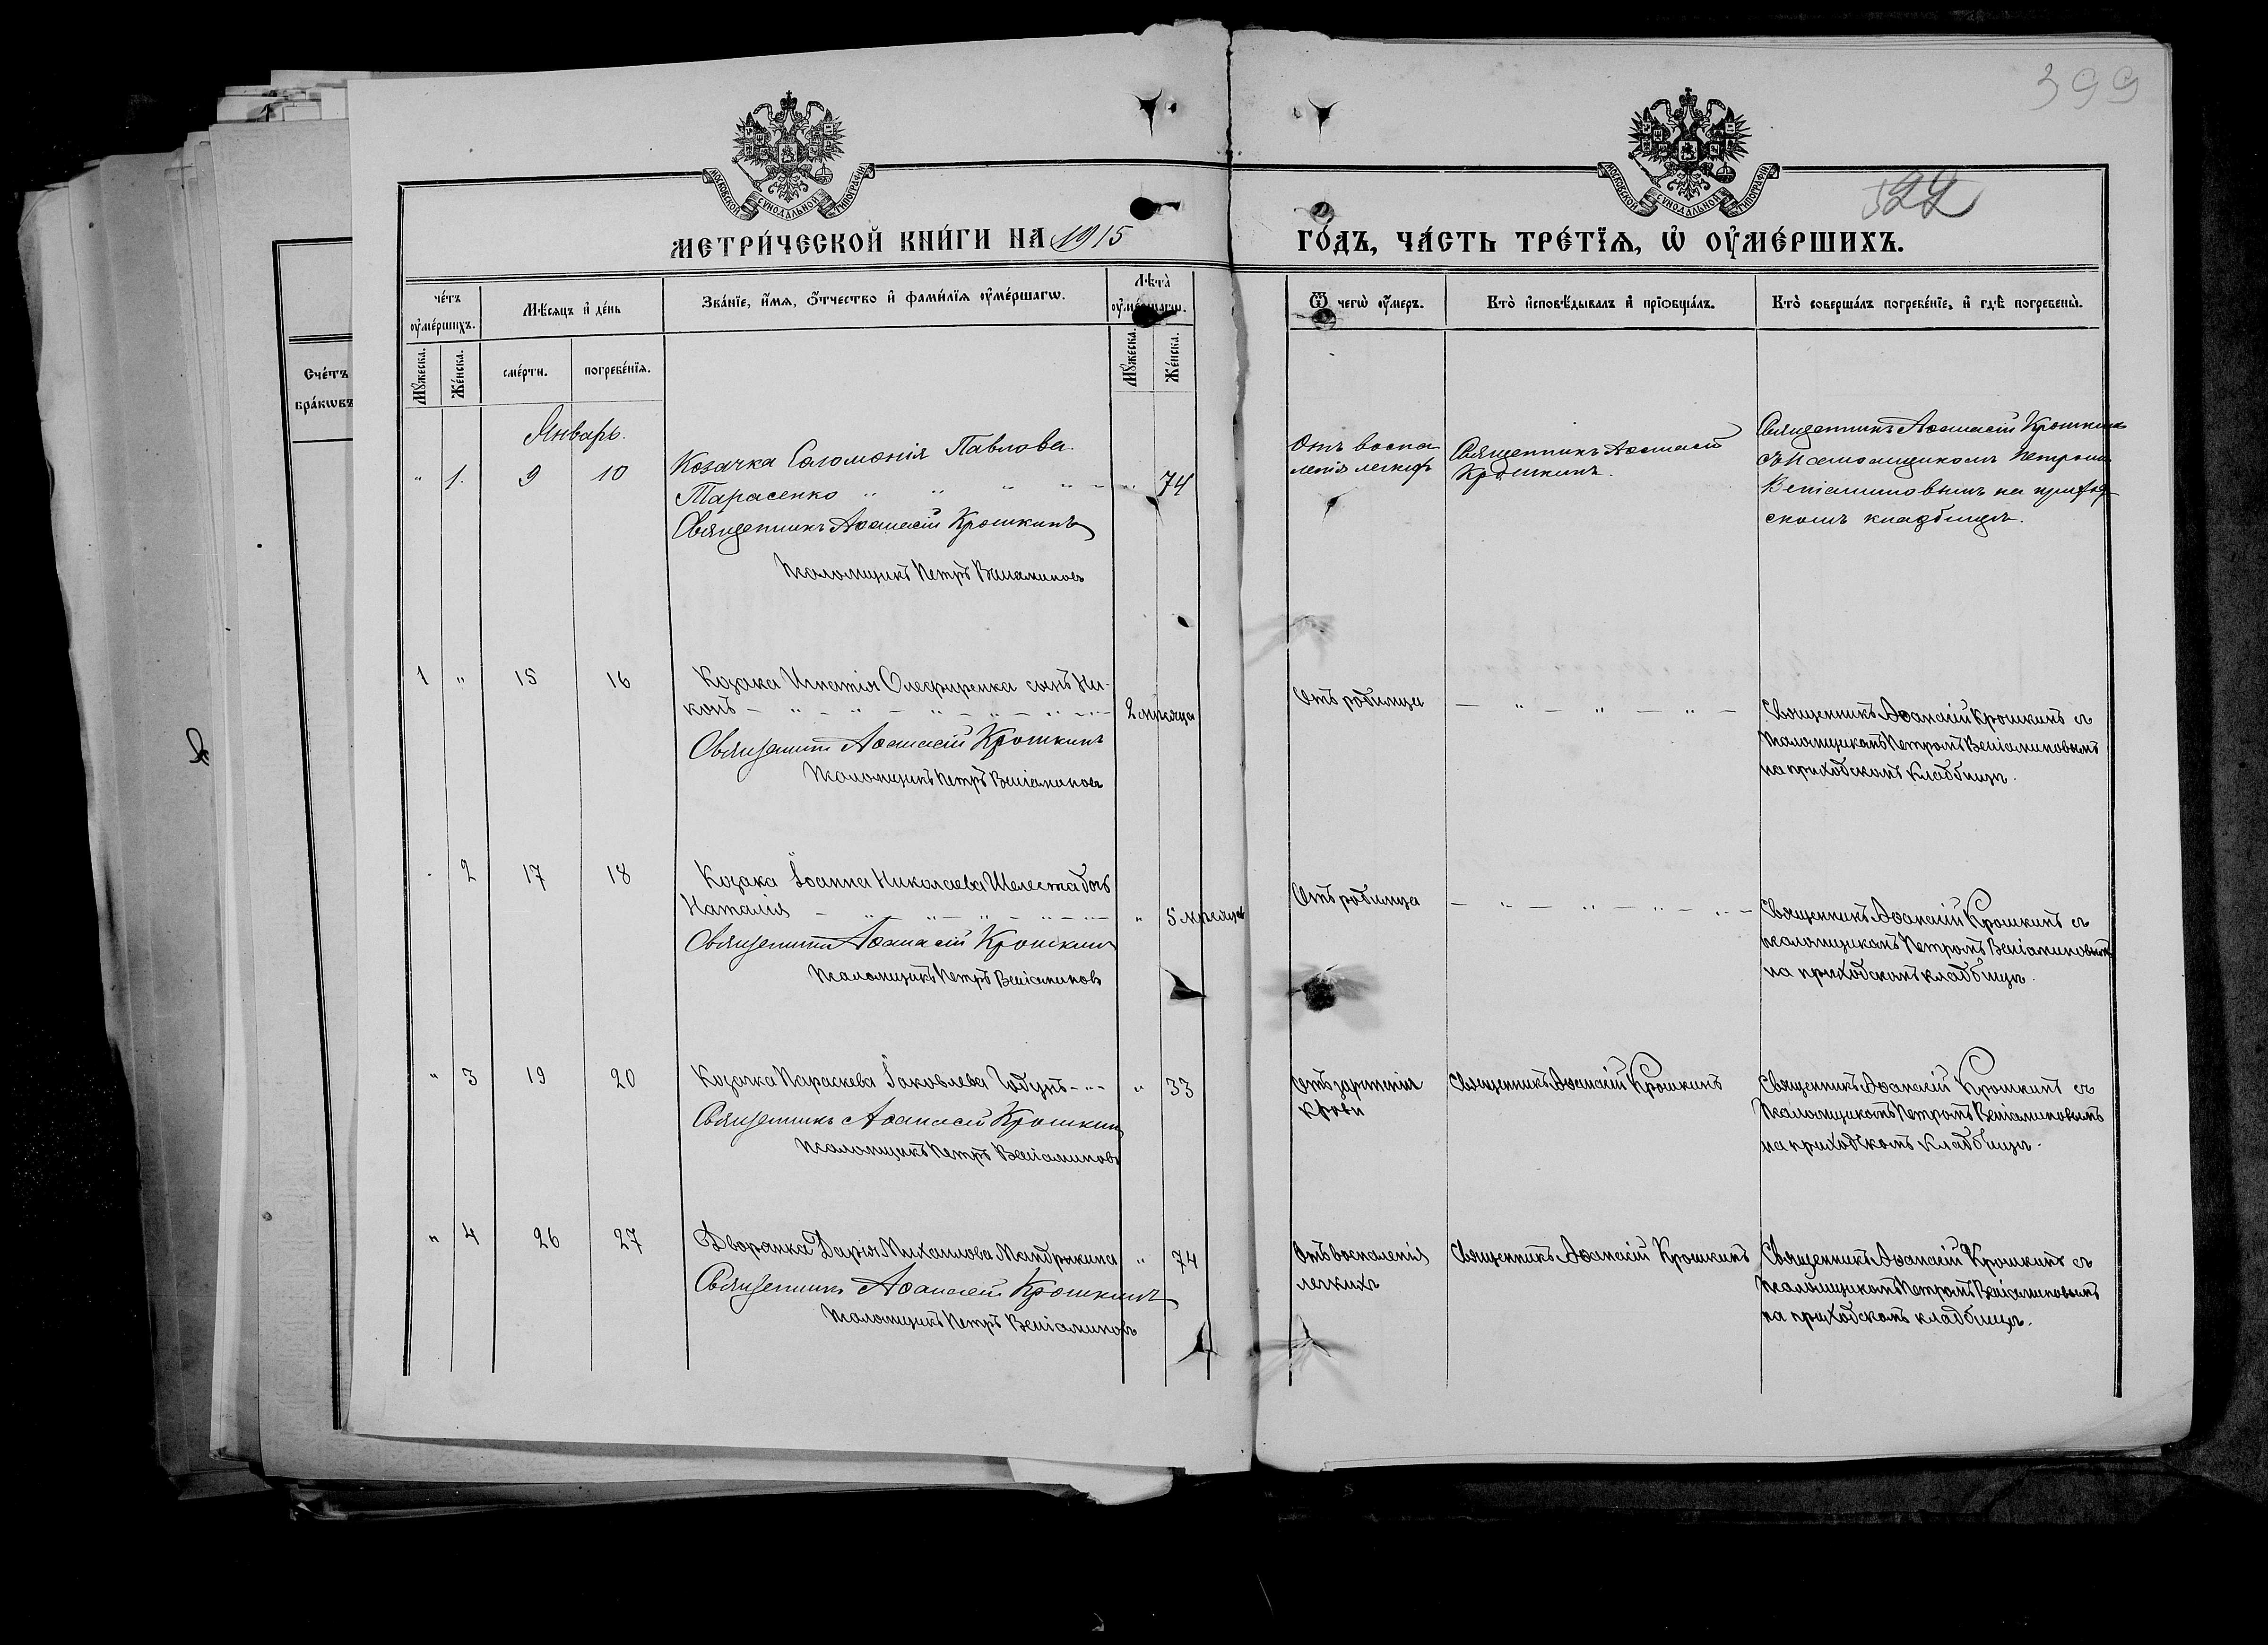 399
522
МОСКОВСКОЙ СѴНОДАЛЬНОЙ ТИПОГРАФІИ
МОСКОВСКОЙ СѴНОДАЛЬНОЙ ТИПОГРАФІИ
МЕТРИ́ЧЕСКОЙ КНИ́ГИ НА 1915
ГО́ДЪ, ЧА́СТЬ ТРЕ́ТЇѦ, Ѡ҆ ОУ҆МЕ́РШИХЪ.
Сче́тъ
бра́кѡвъ
че́тъ
оу҆ме́ршихъ.
Мꙋ́жеска.
Же́нска.
Мѣ́сяцъ и҆ де́нь
сме́рти.
погребе́нїѧ.
Зва́нїе, и҆́мѧ, ѻ҆́тчество и҆ фами́лїѧ оу҆ме́ршагѡ.
Лѣ́та
оу҆ме́ршагѡ.
Мꙋ́жеска.
Же́нска.
Ѿ чегѡ̀ оу҆́меръ.
Кто̀ и҆сповѣ́дывалъ и҆ прїѡбща́лъ.
Кто̀ соверша́лъ погребе́нїе, и҆ гдѣ̀ погребены̀.
Январь.
" 1. 9 10
Козачка Соломонія Павлова
Тарасенко " " " " " 74
Священникъ Аѳанасій Крошкинъ
Псаломщикъ Петръ Веніаминовъ
Отъ воспа
ленія легкихъ
Священникъ Аѳанасій
Крошкинъ.
Священникъ Аѳанасій Крошкинъ
съ псаломщикомъ Петромъ
Веніаминовымъ на приход
скомъ кладбищѣ.
1 " 15 16
Козака Игнатія Олефиренка сынъ Ни-
конъ — " — " — " — " — 2 мѣсяца
Священникъ Аѳанасій Крошкинъ
Псаломщикъ Петръ Веніаминовъ
Отъ родимца
— " — " — " —
Священникъ Аѳанасій Крошкинъ съ
псаломщикомъ Петромъ Веніаминовымъ
на приходскомъ кладбищѣ.
" 2 17 18
Козака Іоанна Николаева Шелеста дочь
Наталія — " — " — " — " — " 5 мѣсяцев
Священникъ Аѳанасій Крошкинъ
Псаломщикъ Петръ Веніаминовъ
Отъ родимца
— " — " — " — " —
Священникъ Аѳанасій Крошкинъ съ
псаломщикомъ Петромъ Веніаминовымъ
на приходскомъ кладбищѣ.
" 3 19 20
Козачка Параскева Іаковлева Годунъ - " - " 33
Священникъ Аѳанасій Крошкинъ
Псаломщикъ Петръ Веніаминовъ
Отъ зараженія
крови
Священникъ Аѳанасій Крошкинъ
Священникъ Аѳанасій Крошкинъ съ
псаломщикомъ Петромъ Веніаминовымъ
на приходскомъ кладбищѣ.
" 4 26 27
Дворянка Дарія Михаилова Мандрыкина " 74
Священникъ Аѳанасій Крошкинъ
Псаломщикъ Петръ Веніаминовъ
Отъ воспаленія
легкихъ
Священникъ Аѳанасій Крошкинъ
Священникъ Аѳанасій Крошкинъ съ
псаломщикомъ Петромъ Веніаминовымъ
на приходскомъ кладбищѣ.